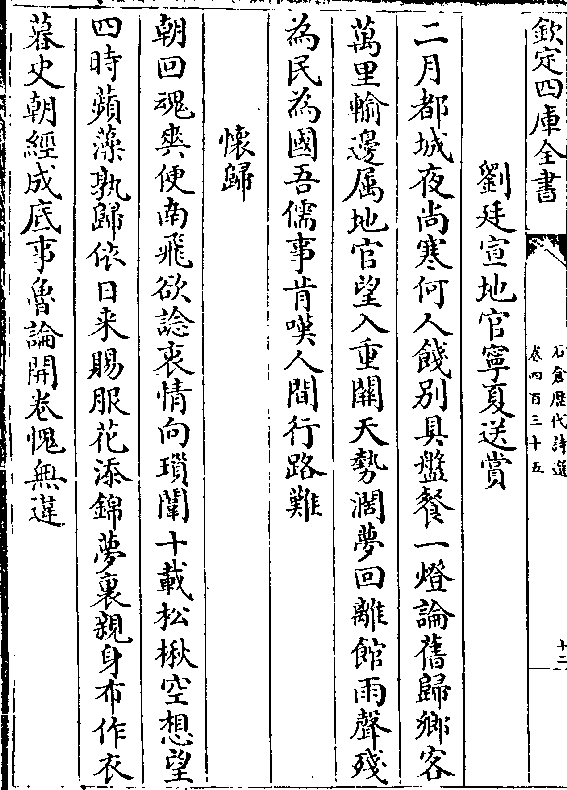 欽定四庫全書
石倉歷代詩選
卷四百三十五
十二
劉廷宣地官寧夏送賞
二月都城夜尚寒何人餞别具盤餐一燈論舊歸鄉客
萬里輸邊属地官望入重關天勢濶夢回離館雨聲殘
為民為國吾儒事肯嘆人間行路難
懷歸
朝回魂爽便南飛欲諗衷情向瑣闈十載松楸空想望
四時蘋藻孰歸依日来賜服花添錦夢裏親身布作衣
暮史朝經成底事魯論開卷愧無違